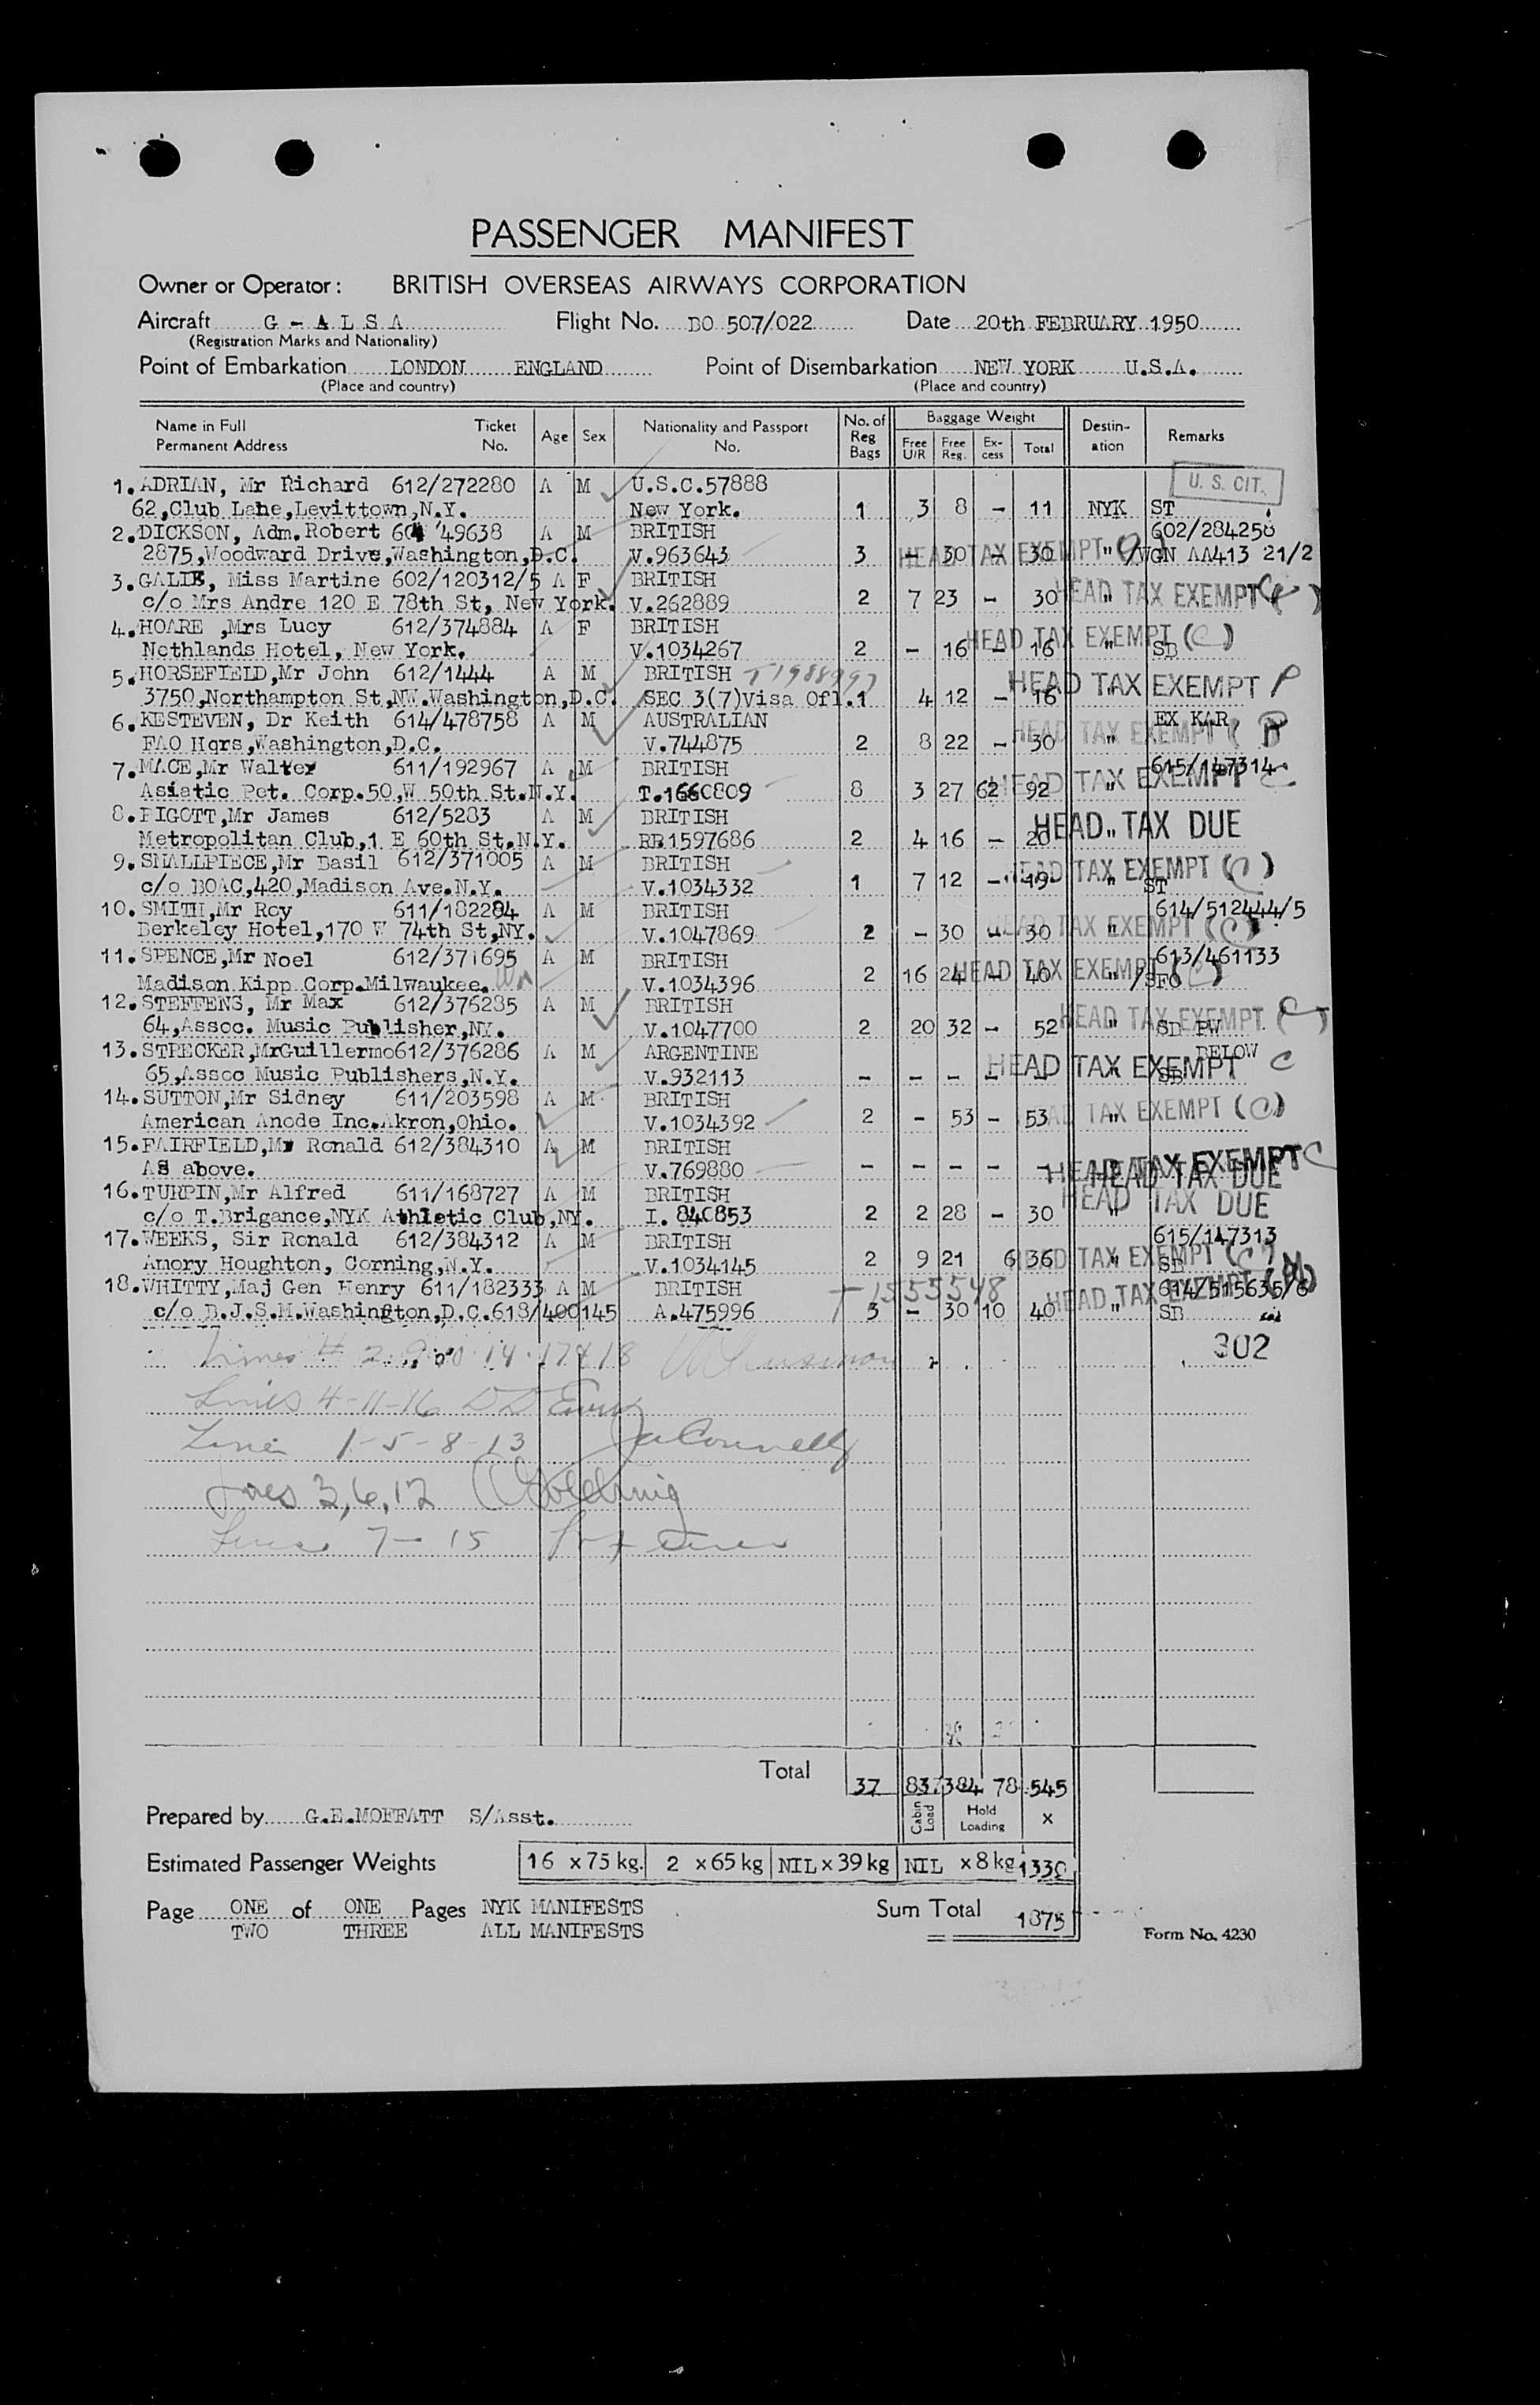 PASSENGER MANIFEST
Owner or Operator : BRITISH OVERSEAS AIRWAYS CORPORATION
Aircraft G - A L S A Flight No. BO 507/022 Date 20th FEBRUARY 1950
(Registration Marks and Nationality)
Point of Embarkation LONDON ENGLAND Point of Disembarkation NEW YORK U.S.A.
(Place and country) (Place and country)
Name in Full Permanent Address Ticket No. Age Sex Nationality and Passport No. No. of Reg Bags Baggage Weight Free U/R Free Reg. Ex-cess Total Destin-ation Remarks
U. S. CIT.
1. ADRIAN, Mr Richard 612/272280 A M U.S.C.57888
62,Club Lane,Levittown,N.Y. New York. 1 3 8 - 11 NYK ST
2. DICKSON, Adm.Robert 49638 A M BRITISH 602/284258
2875,Woodward Drive,Washington,D.C. V.963643 3 - 30 - 30 " /WGN AA413 21/2 HEAD TAX EXEMPT
3. GALIE, Miss Martine 602/120312/5 A F BRITISH
c/o Mrs Andre 120 E 78th St, New York. V.262889 2 7 23 - 30 " HEAD TAX EXEMPT
4. HOARE ,Mrs Lucy 612/374884 A F BRITISH
Nethlands Hotel, New York. V.1034267 2 - 16 - 16 " SB HEAD TAX EXEMPT (C)
5. HORSEFIELD,Mr John 612/1444 A M BRITISH
3750,Northampton St,NW.Washington,D.C. SEC 3(7)Visa Ofl. 1 4 12 - 16 " HEAD TAX EXEMPT P
6. KESTEVEN, Dr Keith 614/478758 A M AUSTRALIAN EX KAR
FAO Hqrs,Washington,D.C. V.744875 2 8 22 - 30 " HEAD TAX EXEMPT
7. MACE,Mr Walter 611/192967 A M BRITISH 615/147314
Asiatic Pet. Corp.50,W 50th St.N.Y. T.1660809 8 3 27 62 92 " HEAD TAX EXEMPT C
8. PIGOTT,Mr James 612/5283 A M BRITISH
Metropolitan Club,1 E 60th St.N.Y. RB1597686 2 4 16 - 20 " HEAD TAX DUE
9. SMALLPIECE,Mr Basil 612/371005 A M BRITISH
c/o BOAC,420,Madison Ave.N.Y. V.1034332 1 7 12 - 19 " ST HEAD TAX EXEMPT (C)
10. SMITH,Mr Roy 611/182284 A M BRITISH 614/512444/5
Berkeley Hotel,170 W 74th St,NY. V.1047869 2 - 30 - 30 " HEAD TAX EXEMPT (C)
11. SPENCE,Mr Noel 612/371695 A M BRITISH 613/461133
Madison Kipp Corp.Milwaukee. V.1034396 2 16 24 - 40 " /SFO HEAD TAX EXEMPT (C)
12. STEFFENS, Mr Max 612/376285 A M BRITISH
64,Assoc. Music Publisher,NY. V.1047700 2 20 32 - 52 " SB PW HEAD TAX EXEMPT (C)
13. STRECKER,MrGuillermo612/376286 A M ARGENTINE BELOW
65,Assoc Music Publishers,N.Y. V.932113 - - - - - " SB HEAD TAX EXEMPT C
14. SUTTON,Mr Sidney 611/203598 A M BRITISH
American Anode Inc.Akron,Ohio. V.1034392 2 - 53 - 53 " HEAD TAX EXEMPT (C)
15. FAIRFIELD,Mr Ronald 612/384310 A M BRITISH
AS above. V.769880 - - - - - HEAD TAX EXEMPT C HEAD TAX DUE
16. TURPIN,Mr Alfred 611/168727 A M BRITISH
c/o T.Brigance,NYK Athletic Club,NY. I. 840853 2 2 28 - 30 " HEAD TAX DUE
17. WEEKS, Sir Ronald 612/384312 A M BRITISH 615/147313
Amory Houghton, Corning,N.Y. V.1034145 2 9 21 6 36 " SB HEAD TAX EXEMPT (C)
18. WHITTY,Maj Gen Henry 611/182333 A M BRITISH T-1555548 614/515635/6
c/o B.J.S.M.Washington,D.C.618/400145 A.475996 3 - 30 10 40 " SB HEAD TAX EXEMPT
302
Lines 4-11-16
Line 1-5-8-13 Connelly
Lines 3,6,12
Lines 7-15
Total 37 83 384 78 545
Prepared by G.E.MOFFATT S/Asst. Cabin Load Hold Loading x
Estimated Passenger Weights 16 x 75 kg. 2 x 65 kg NIL x 39 kg NIL x 8 kg 1330
Page ONE of ONE Pages NYK MANIFESTS Sum Total 1875
TWO THREE ALL MANIFESTS
Form No. 4230